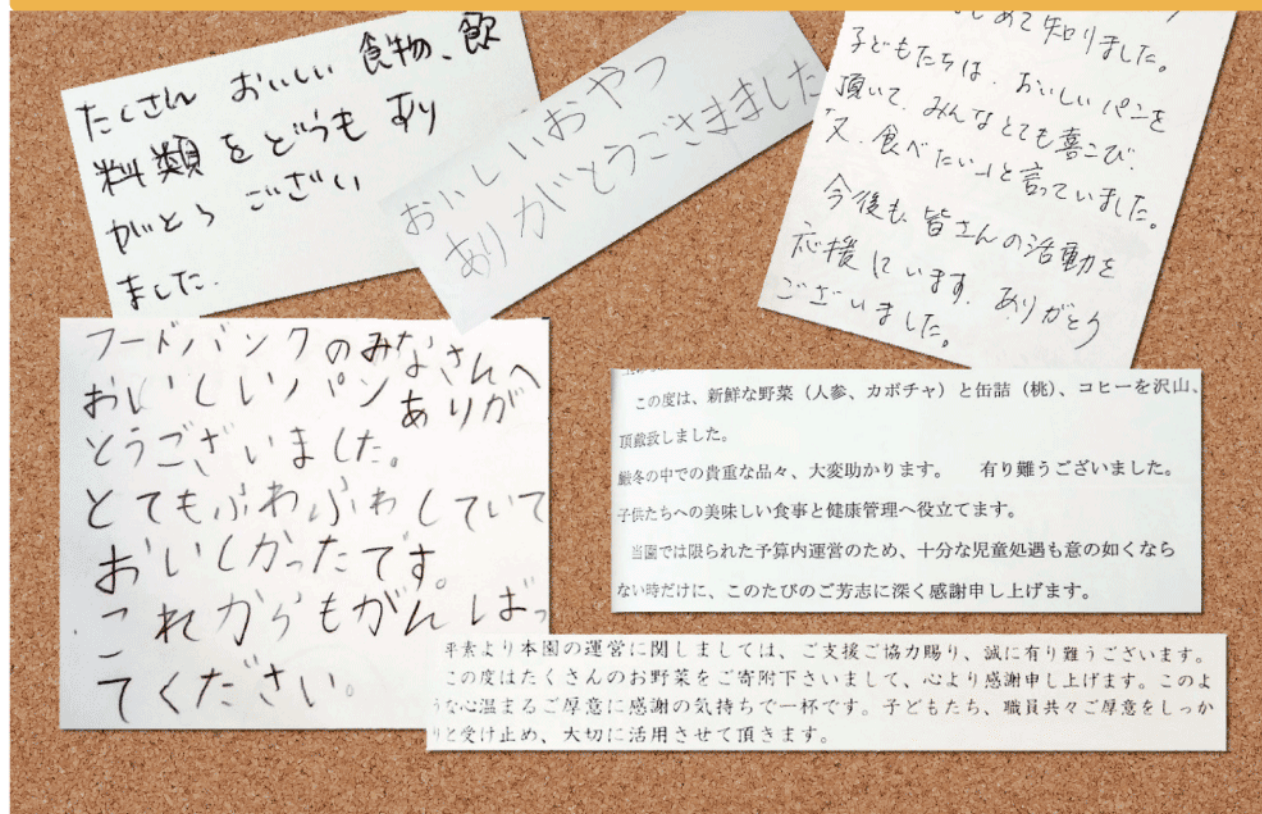 たくさん おいしい 食物、飲
料類をどうもあり
がとう ござい
ました.
おいしいおやつ
ありがとうごさまました
じめて知りました。
子どもたちは、おいしいパンを
頂いて、みんなとても喜こび、
「又、食べたい」と言っていました。
今後も、皆さんの活動を
応援しています。ありがとう
ございました。
フードバンクのみなさんへ
おいしいパンありが
とうございました。
とてもふわふわしていて
おいしかったです。
これからもがんばっ
てください。
この度は、新鮮な野菜（人参、カボチャ）と缶詰（桃）、コヒーを沢山、
頂戴致しました。
厳冬の中での貴重な品々、大変助かります。　有り難うございました。
子供たちへの美味しい食事と健康管理へ役立てます。
当園では限られた予算内運営のため、十分な児童処遇も意の如くなら
ない時だけに、このたびのご芳志に深く感謝申し上げます。
平素より本園の運営に関しましては、ご支援ご協力賜り、誠に有り難うございます。
この度はたくさんのお野菜をご寄附下さいまして、心より感謝申し上げます。このよ
うな心温まるご厚意に感謝の気持ちで一杯です。子どもたち、職員共々ご厚意をしっか
りと受け止め、大切に活用させて頂きます。